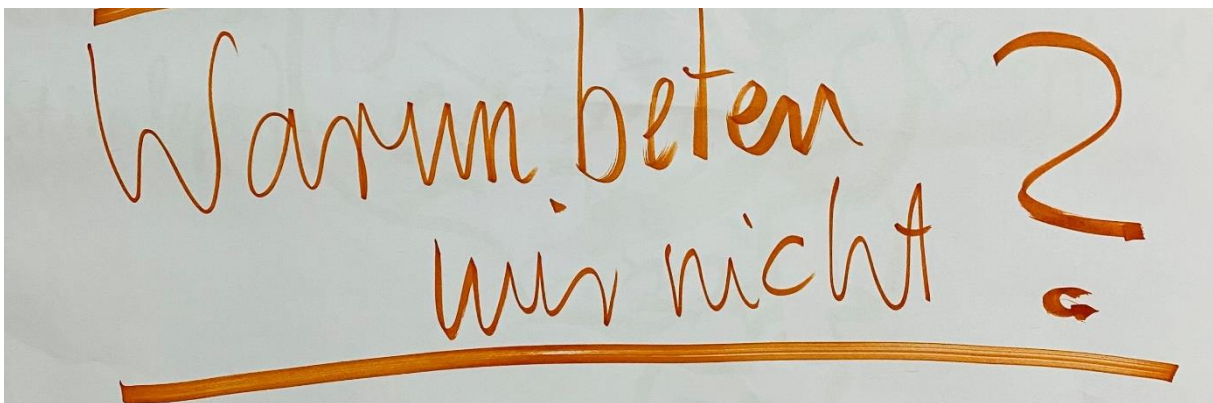 Warum beten
wir nicht ?